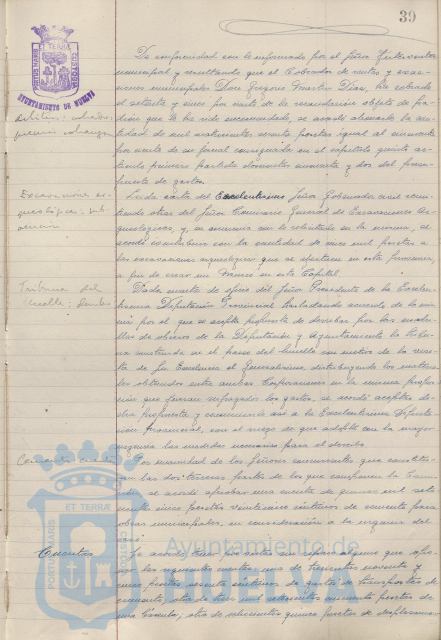 39
PORTUS MARIS ET TERRÆ CUSTODIA
AYUNTAMIENTO DE HUELVA
De conformidad con lo informado por el Señor Interventor
municipal y resultando que el Cobrador de rentas y exac-
ciones municipales Don Gregorio Martín Díaz, ha cobrado
el setenta y cinco por ciento de la recaudación objeto de
que le ha sido encomendada, se acordó abonarle la can-
tidad de mil setecientas pesetas igual al
por ciento de su consignada en el capítulo quinto ar-
tículo primero partida doscientos y dos del presu-
puesto de gastos.
Leída carta del Excelentísimo Señor Gobernador civil
otra del Señor Comisario General de Excavaciones Ar-
queológicas, y, en armonía con lo solicitado en la misma, se
acordó contribuir con la cantidad de cinco mil pesetas a
las excavaciones arqueológicas que se efectúen en esta provincia,
a fin de crear un Museo en esta Capital.
Excavaciones ar-
queológicas. sub-
vención
Dada cuenta de oficio del Señor Presidente de la Excelen-
tísima Diputación Provincial trasladando acuerdo de la mis-
ma por el que se acepta propuesta de derribar por las cuadri-
llas de obreros de la Diputación y Ayuntamiento la tribu-
na construida en el paseo del muelle con motivo de la visi-
ta de Su Excelencia el Generalísimo, distribuyendo los materia-
les obtenidos entre ambas Corporaciones en la misma propor-
ción que fueron sufragados los gastos, se acordó aceptar di-
cha propuesta y comunicarlo así a la Excelentísima Diputa-
ción Provincial, con el ruego de que adopte con la mayor
urgencia las medidas necesarias para el derribo.
Tribuna del
muelle: derribo
Por unanimidad de los Señores concurrentes que constitu-
yen las dos terceras partes de los que componen la Comi-
sión, se acordó aprobar una cuenta de mil sete-
cientas cinco pesetas veinticinco céntimos de cemento para
obras municipales, en consideración a la urgencia del
caso.
Cuentas
Se acordó
las siguientes cuentas: una de trescientas noventa y
cinco pesetas sesenta céntimos de gastos de transportes de
cemento, otra de tres mil setecientas cincuenta pesetas de
otra de setecientas quince pesetas de
PORTUS MARIS ET TERRÆ CUSTODIA
Ayuntamiento de
HUELVA